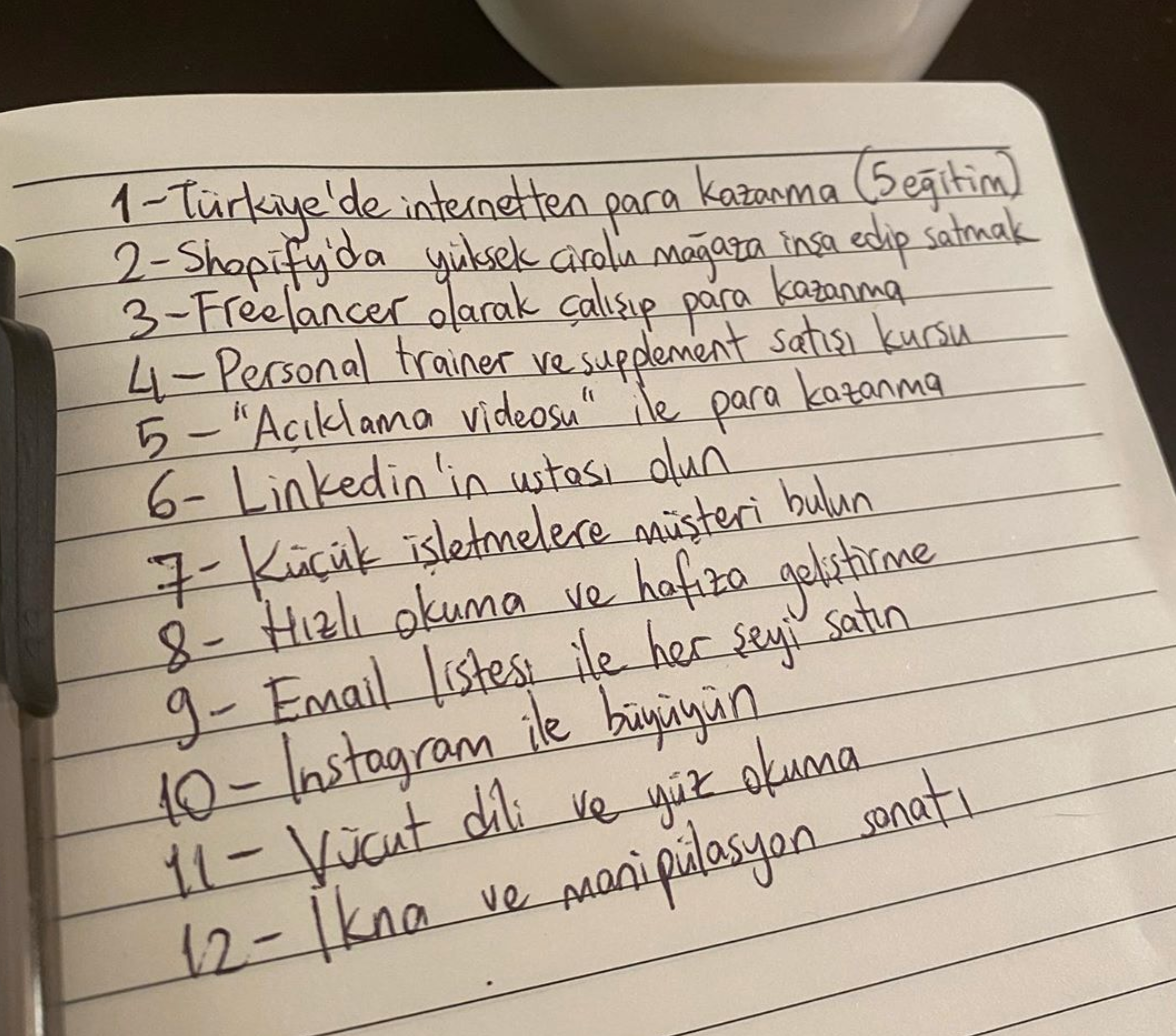 1-Türkiye'de internetten para kazanma (5 eğitim)
2-Shopify'da yüksek cirolu mağaza inşa edip satmak
3-Freelancer olarak çalışıp para kazanma
4-Personal trainer ve supplement satışı kursu
5-"Açıklama videosu" ile para kazanma
6- Linkedin'in ustası olun
7- Küçük işletmelere müşteri bulun
8- Hızlı okuma ve hafıza geliştirme
9- Email listesi ile her şeyi satın
10- Instagram ile büyüyün
11- Vücut dili ve yüz okuma
12- İkna ve manipülasyon sanatı